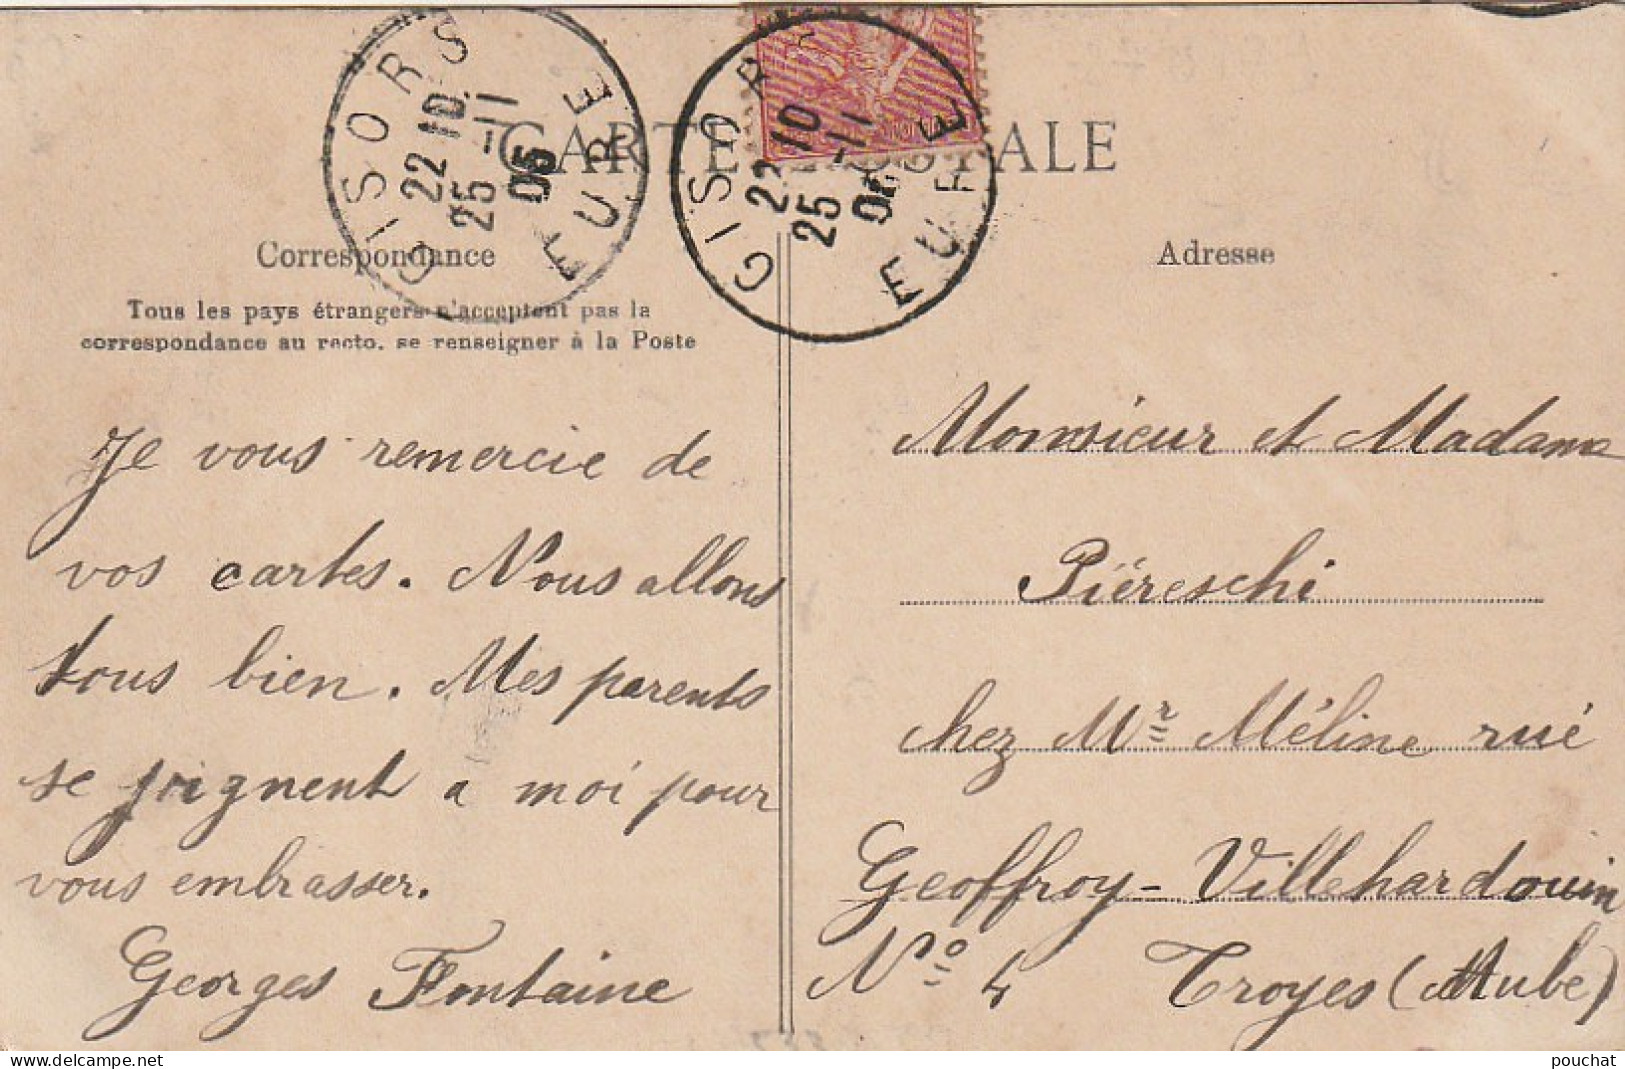 CARTE POSTALE
GISORS
22 10
25 -11
05
EURE
GISORS
22 10
25 -11
EURE
Correspondance
Tous les pays étrangers n'acceptent pas la
correspondance au recto, se renseigner à la Poste
Je vous remercie de
vos cartes. Nous allons
tous bien. Mes parents
se joignent a moi pour
vous embrasser.
Georges Fontaine
Adresse
Monsieur et Madame
Piéreschi
chez Mr Méline rué
Geoffroy-Villehardouin
No 4 Troyes (Aube)
pouchat